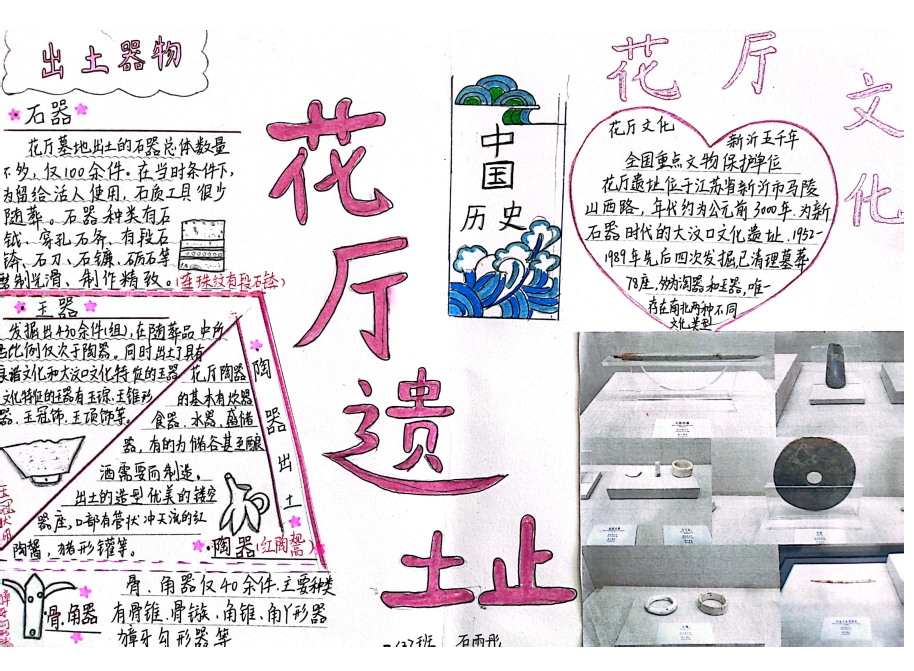 出土器物
石器
花厅墓地出土的石器总体数量
不多，仅100余件。在当时条件下，
为留给活人使用，石质工具很少
随葬。石器种类有石
钺、穿孔石斧、有段石
锛、石刀、石镰、砺石等
制光滑、制作精致。
玉器
发掘出430余件(组)，在随葬品中所
占比例仅次于陶器。同时出土了具有
良渚文化和大汶口文化特征的玉器
文化特征的玉器有玉琮、玉锥形
器、玉冠饰、玉项饰等。
陶器出土
花厅陶器
的基本有炊器
食器、水器、盛储
器，有的为储谷甚至酿
酒需要而制造。
出土的造型优美的镂空
器座，口部有管状冲天流的红
陶鬶，猪形罐等。
陶器(红陶鬶)
骨、角器
骨、角器仅40余件.主要种类
有骨锥、骨镞、角锥、角丫形器
獐牙勾形器等
花厅遗土止
中国
历史
花厅文化
花厅文化
新沂五千年
全国重点文物保护单位
花厅遗址位于江苏省新沂市马陵
山西路，年代约为公元前3000年.为新
石器时代的大汶口文化遗址.1952-
1989年先后四次发掘,已清理墓葬
78座,分为陶器和玉器,唯一
存在南北两种不同
文化类型
石雨彤